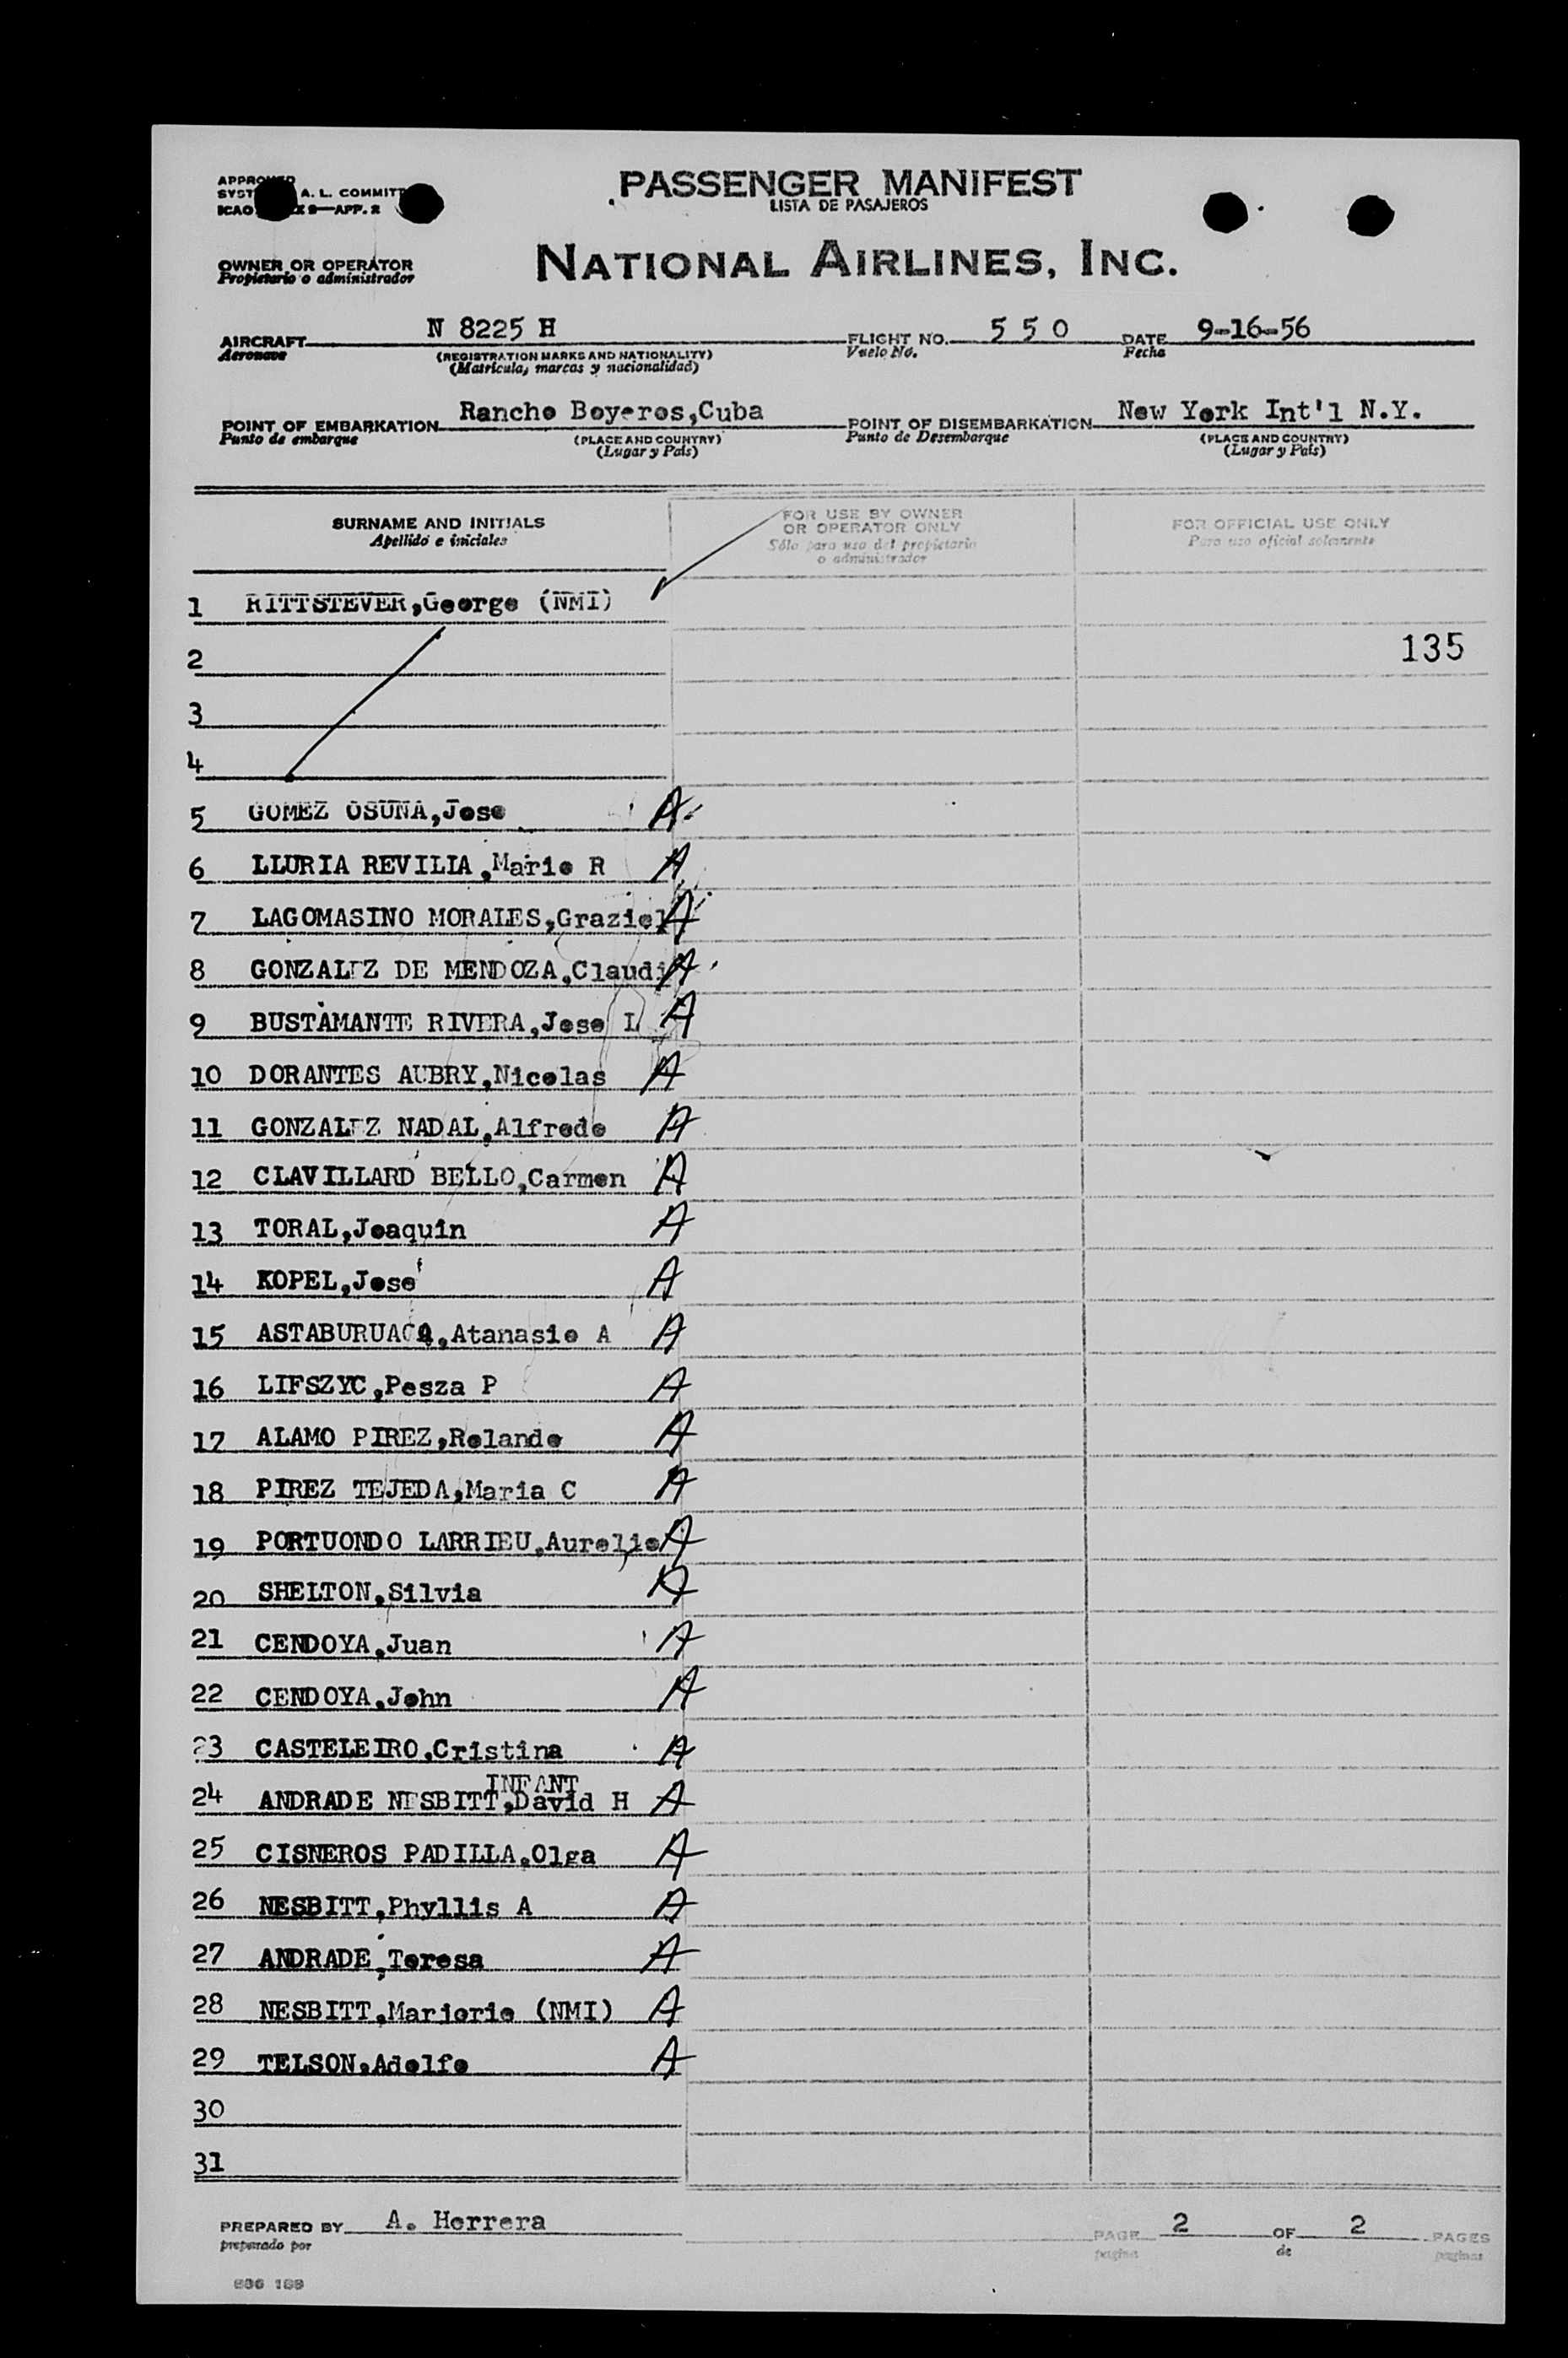 PASSENGER MANIFEST
LISTA DE PASAJEROS
A. L. COMMITT
ICAO 9—APP. 2
OWNER OR OPERATOR
Propietario o administrador
NATIONAL AIRLINES, INC.
AIRCRAFT N 8225 H FLIGHT NO. 5 5 0 DATE 9-16-56
Aeronave (REGISTRATION MARKS AND NATIONALITY) Vuelo No. Fecha
(Matricula, marcas y nacionalidad)
POINT OF EMBARKATION Rancho Boyeros,Cuba POINT OF DISEMBARKATION New York Int'l N.Y.
Punto de embarque (PLACE AND COUNTRY) Punto de Desembarque (PLACE AND COUNTRY)
(Lugar y País) (Lugar y País)
SURNAME AND INITIALS FOR USE BY OWNER OR OPERATOR ONLY FOR OFFICIAL USE ONLY
Apellido e iniciales Sólo para uso del propietario o administrador Para uso oficial solamente
1 RITTSTEVER,George (NMI)
2 135
3
4
5 GOMEZ OSUNA,Jose A
6 LLURIA REVILIA,Mario R A
7 LAGOMASINO MORALES,Graziel A
8 GONZALEZ DE MENDOZA,Claudi A
9 BUSTAMANTE RIVERA,Jose L A
10 DORANTES AUBRY,Nicolas A
11 GONZALEZ NADAL,Alfredo A
12 CLAVILLARD BELLO,Carmen A
13 TORAL,Joaquin A
14 KOPEL,Jose' A
15 ASTABURUAGA,Atanasio A A
16 LIFSZYC,Pesza P A
17 ALAMO PIREZ,Rolando A
18 PIREZ TEJEDA,Maria C A
19 PORTUONDO LARRIEU,Aurelio A
20 SHELTON,Silvia A
21 CENDOYA,Juan A
22 CENDOYA,John A
23 CASTELEIRO,Cristina A
INFANT
24 ANDRADE NESBITT,David H A
25 CISNEROS PADILLA,Olga A
26 NESBITT,Phyllis A A
27 ANDRADE,Teresa A
28 NESBITT,Marjorie (NMI) A
29 TELSON,Adolfo A
30
31
PREPARED BY A. Herrera PAGE 2 OF 2 PAGES
preparado por pagina de paginas